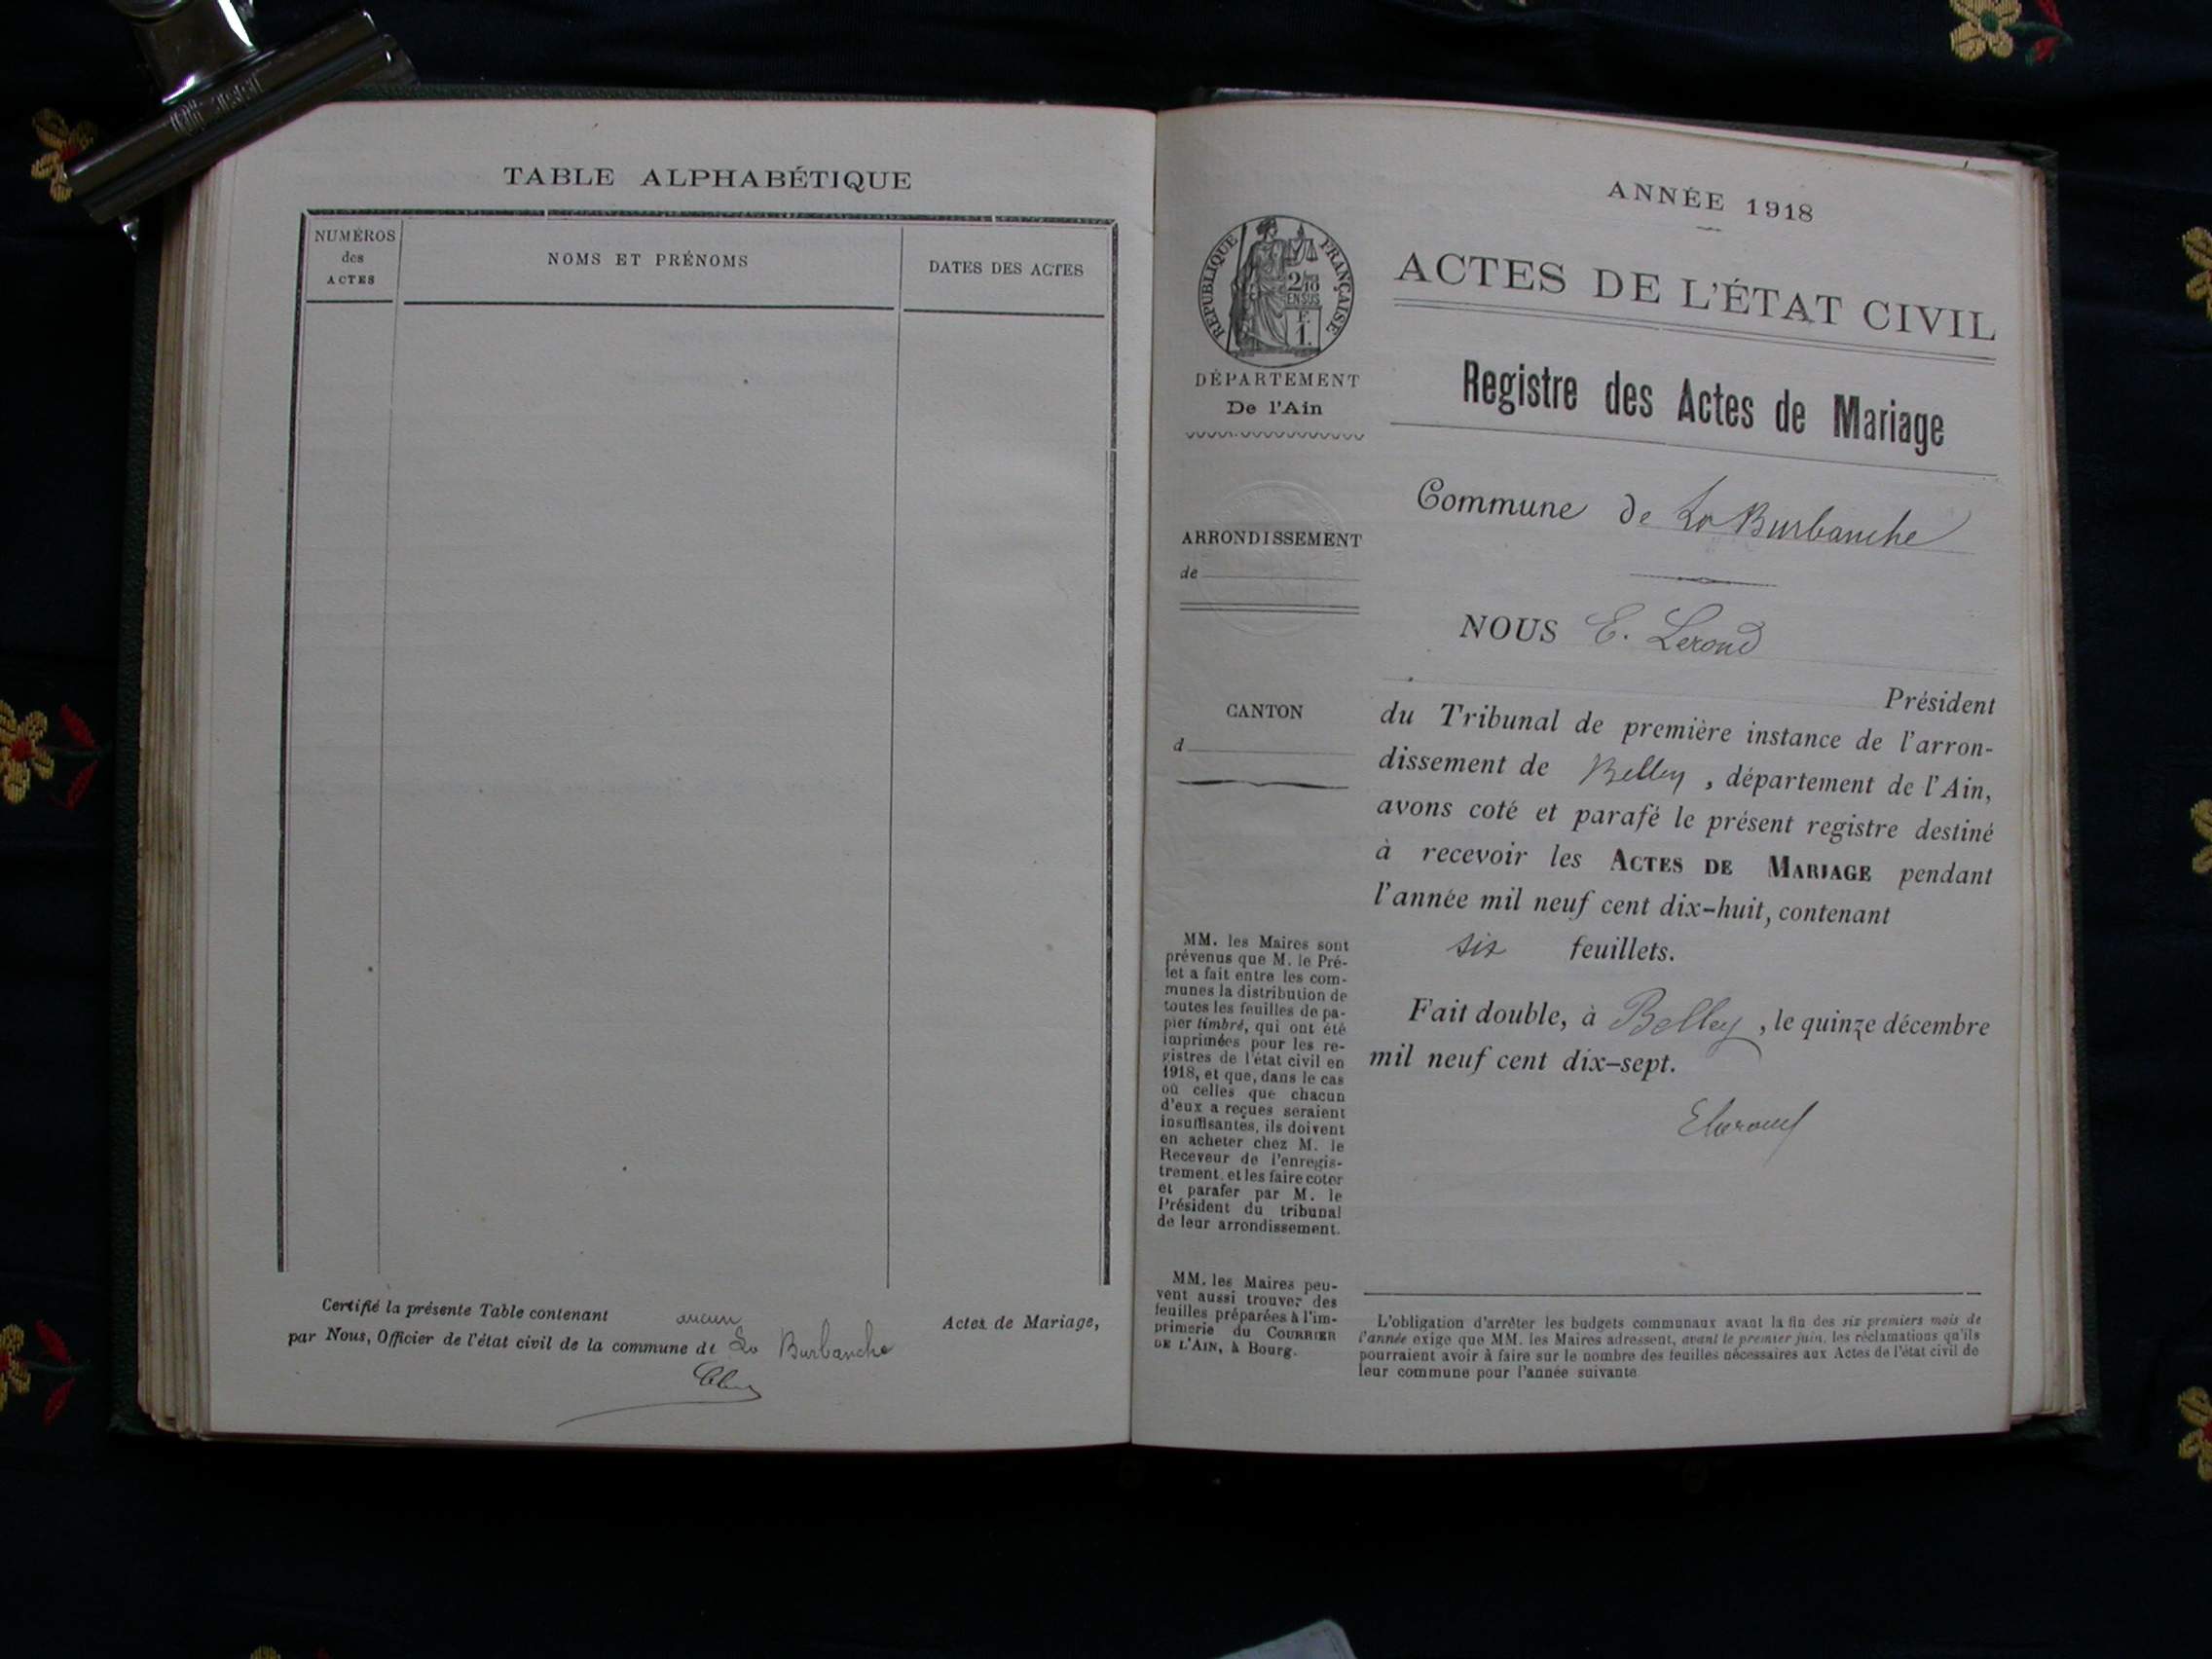 TABLE ALPHABÉTIQUE
NUMÉROS
des
ACTES
NOMS ET PRÉNOMS
DATES DES ACTES
Certifié la présente Table contenant aucun Actes de Mariage,
par Nous, Officier de l'état civil de la commune de La Burbanche
ANNÉE 1918
RÉPUBLIQUE FRANÇAISE
2/10
EN SUS
F.
1.
DÉPARTEMENT
De l'Ain
ARRONDISSEMENT
de
CANTON
d
MM. les Maires sont
prévenus que M. le Pré-
fet a fait entre les com-
munes la distribution de
toutes les feuilles de pa-
pier timbré, qui ont été
imprimées pour les re-
gistres de l'état civil en
1918, et que, dans le cas
où celles que chacun
d'eux a reçues seraient
insuffisantes, ils doivent
en acheter chez M. le
Receveur de l'enregis-
trement, et les faire coter
et parafer par M. le
Président du tribunal
de leur arrondissement.
MM. les Maires peu-
vent aussi trouver des
feuilles préparées à l'im-
primerie du COURRIER
DE L'AIN, à Bourg.
ACTES DE L'ÉTAT CIVIL
Registre des Actes de Mariage
Commune de La Burbanche
NOUS E. Lerond
Président
du Tribunal de première instance de l'arron-
dissement de Belley, département de l'Ain,
avons coté et parafé le présent registre destiné
à recevoir les ACTES DE MARIAGE pendant
l'année mil neuf cent dix-huit, contenant
six feuillets.
Fait double, à Belley, le quinze décembre
mil neuf cent dix-sept.
ELerond
L'obligation d'arrêter les budgets communaux avant la fin des six premiers mois de
l'année exige que MM. les Maires adressent, avant le premier juin, les réclamations qu'ils
pourraient avoir à faire sur le nombre des feuilles nécessaires aux Actes de l'état civil de
leur commune pour l'année suivante